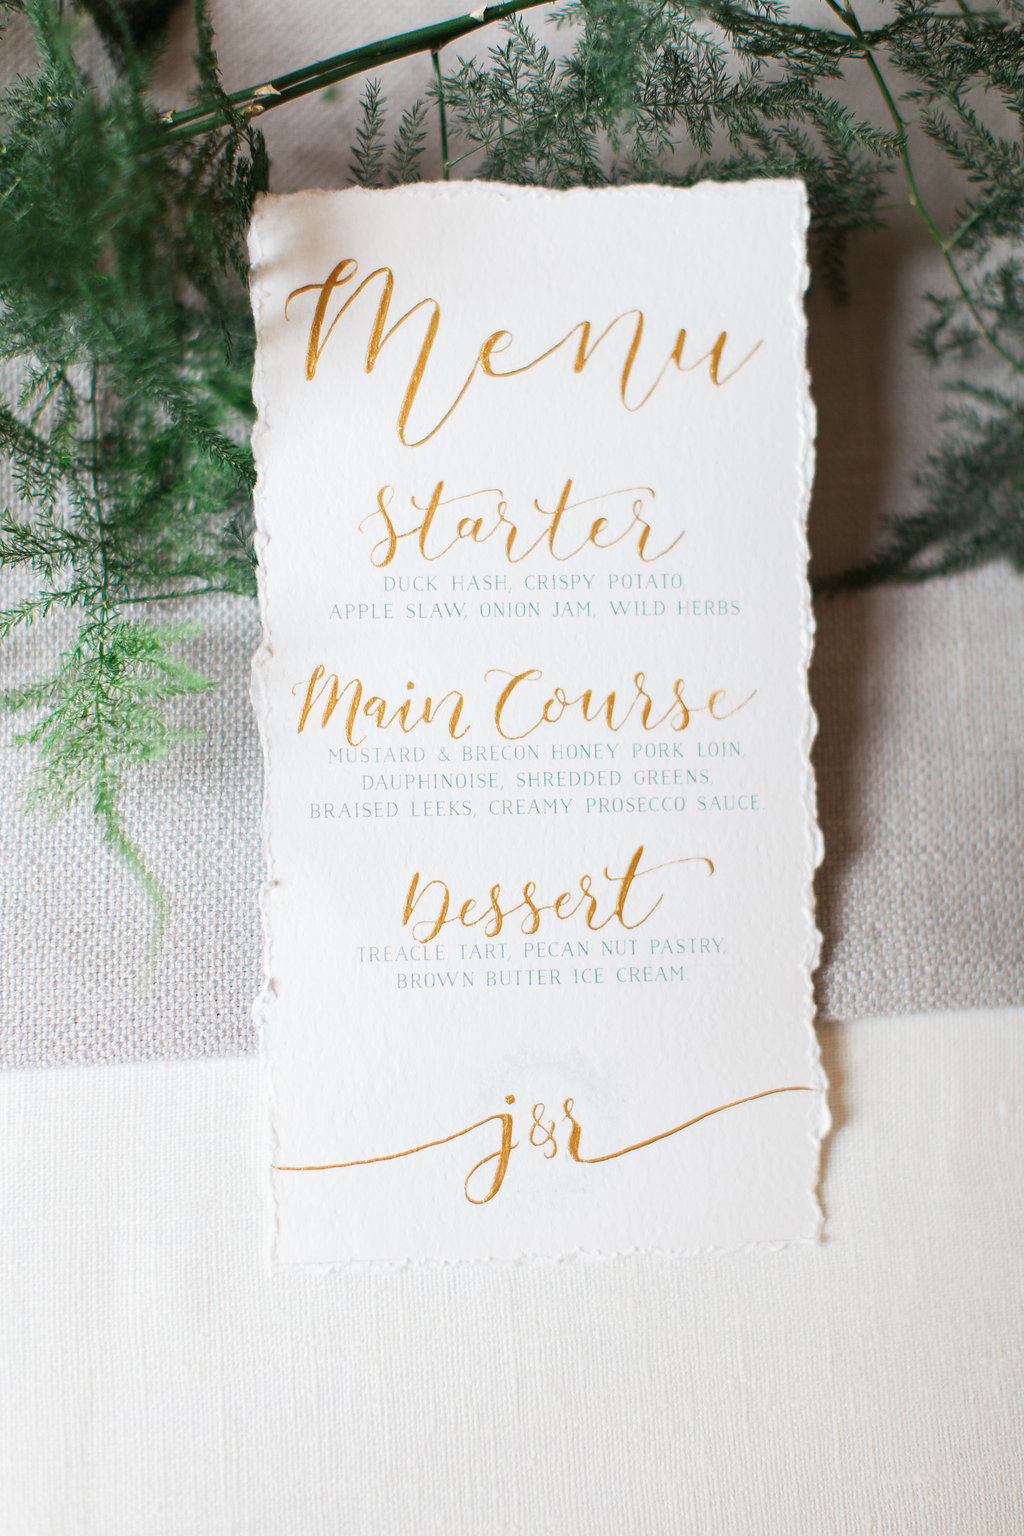 Menu
Starter
DUCK HASH, CRISPY POTATO,
APPLE SLAW, ONION JAM, WILD HERBS
Main Course
MUSTARD & BRECON HONEY PORK LOIN,
DAUPHINOISE, SHREDDED GREENS,
BRAISED LEEKS, CREAMY PROSECCO SAUCE.
Dessert
TREACLE TART, PECAN NUT PASTRY,
BROWN BUTTER ICE CREAM.
j&r